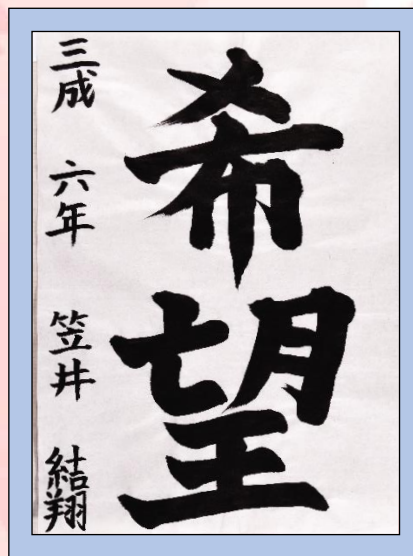 希望
三成 六年 笠井 結翔